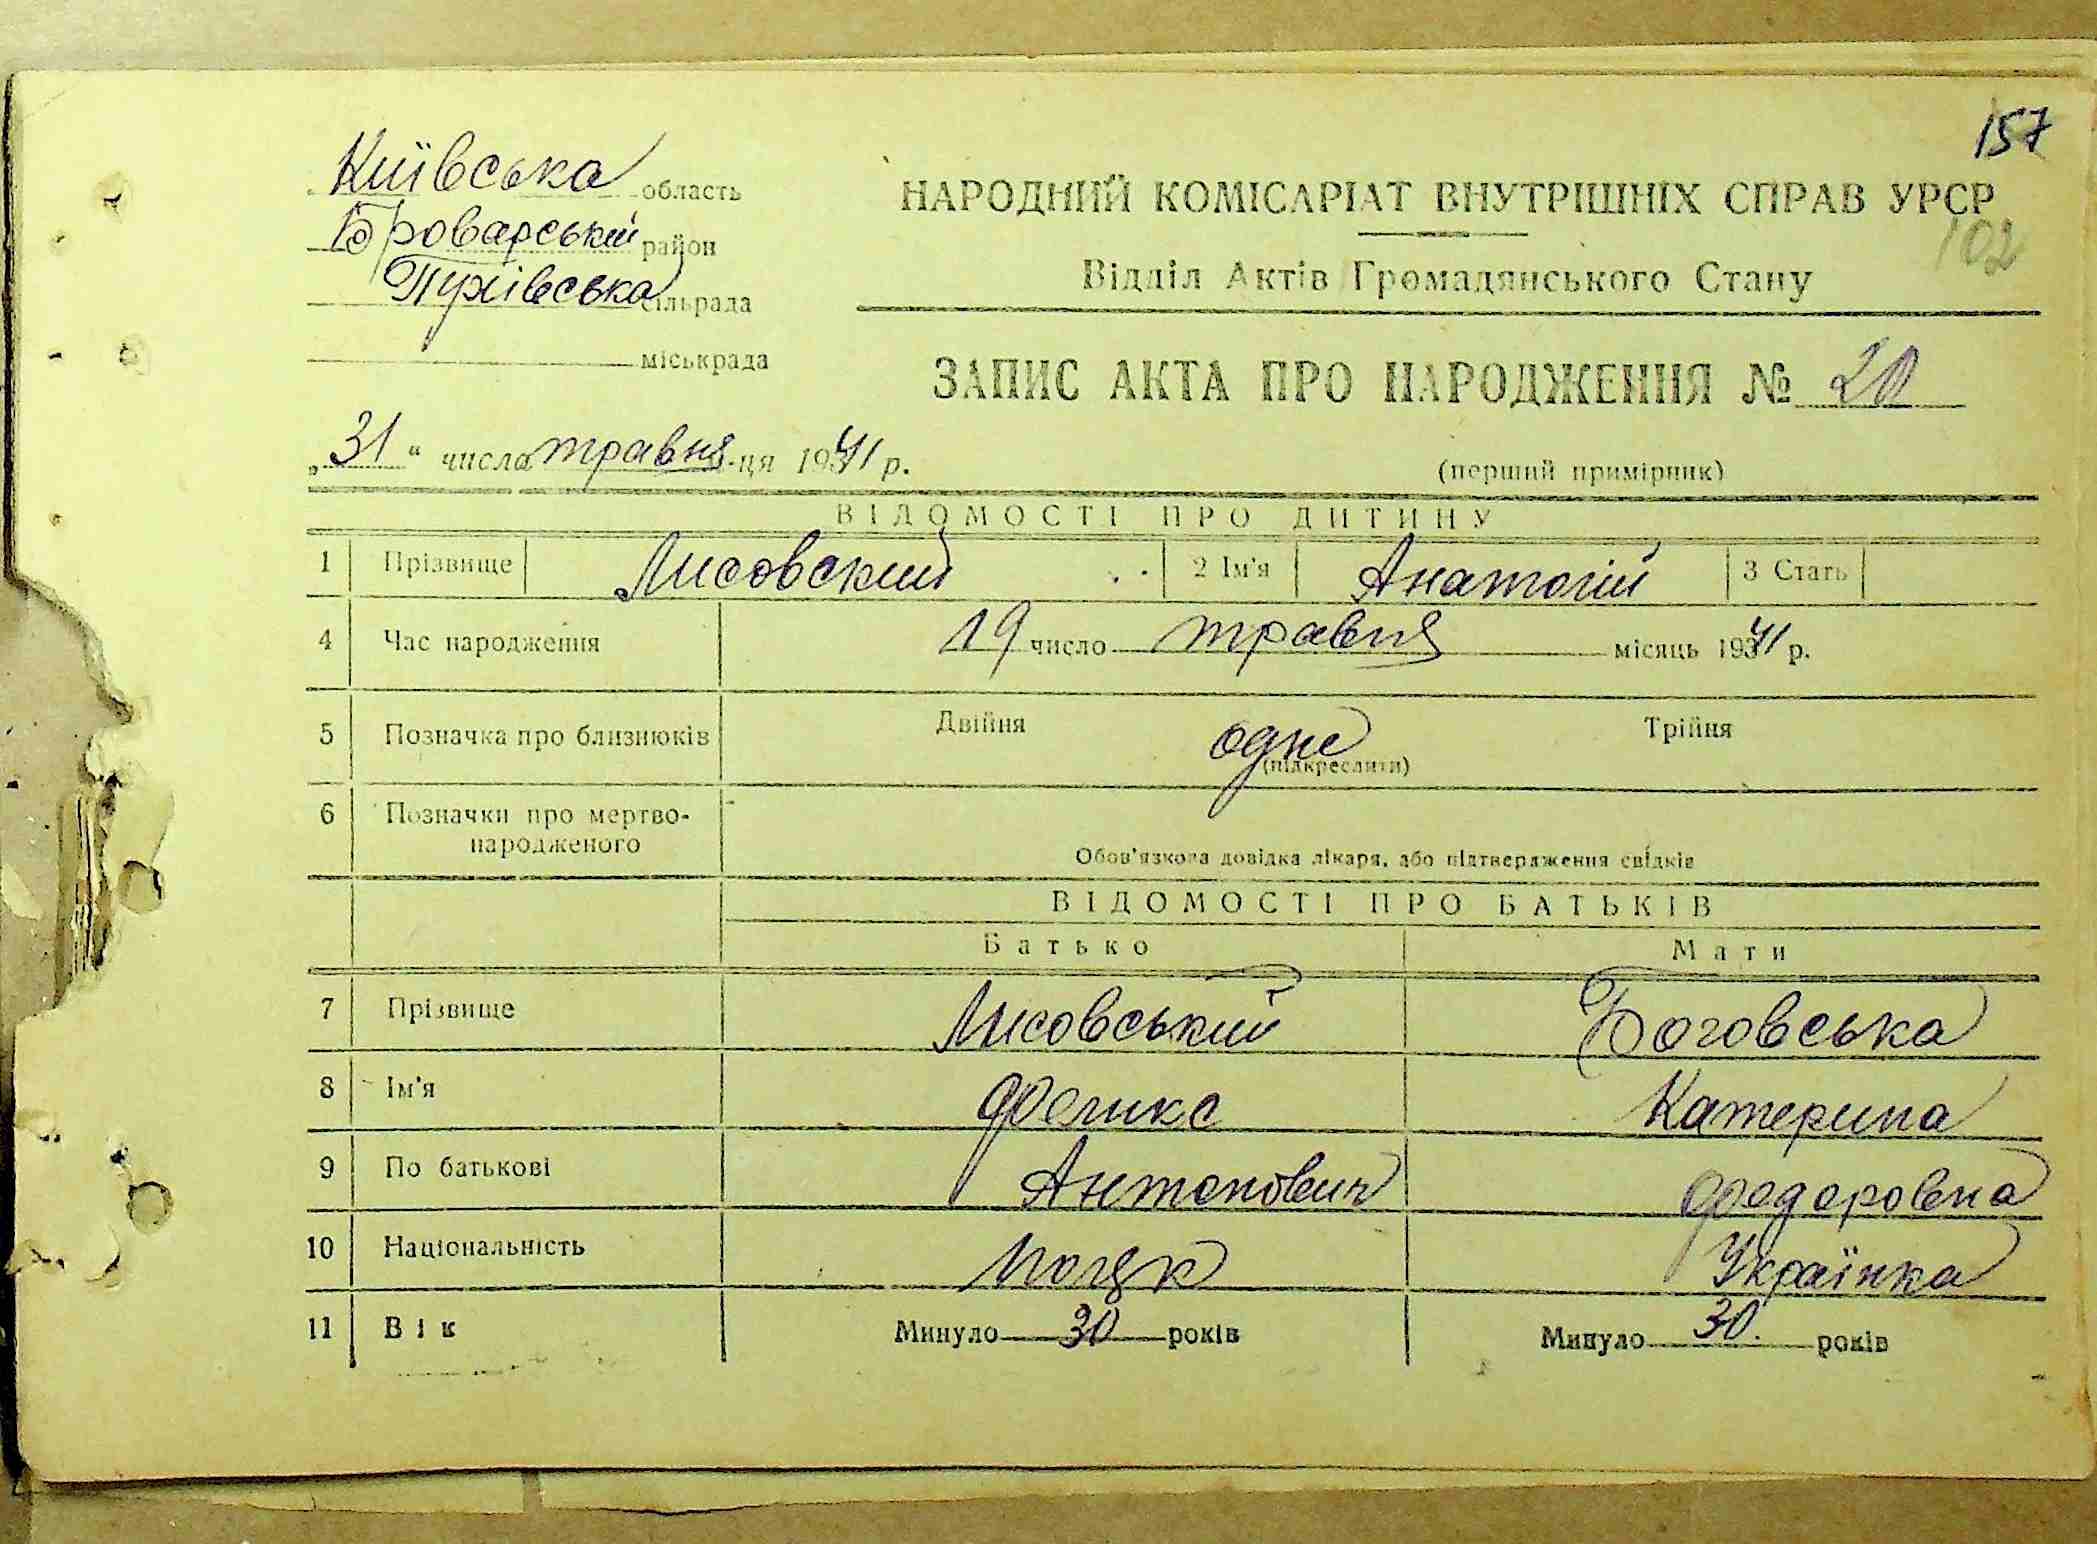 157
Київська область
НАРОДНИЙ КОМІСАРІАТ ВНУТРІШНІХ СПРАВ УРСР
Броварський район
102
Пухівська сільрада
Відділ Актів Громадянського Стану
міськрада
ЗАПИС АКТА ПРО НАРОДЖЕННЯ № 20
„31“ числа травня м-ця 1941 р.
(перший примірник)
ВІДОМОСТІ ПРО ДИТИНУ
1 Прізвище Лисовский 2 Ім'я Анатолій 3 Стать
4 Час народження 19 число травня місяць 1941 р.
5 Позначка про близнюків Двійня одне Трійня
(підкреслити)
6 Позначки про мертво-
народженого
Обов'язкова довідка лікаря, або підтвердження свідків
ВІДОМОСТІ ПРО БАТЬКІВ
Батько Мати
7 Прізвище Лисовський Боговська
8 Ім'я Феликс Катерина
9 По батькові Антонович Федоровна
10 Національність Поляк Українка
11 Вік Минуло 30 років Минуло 30. років